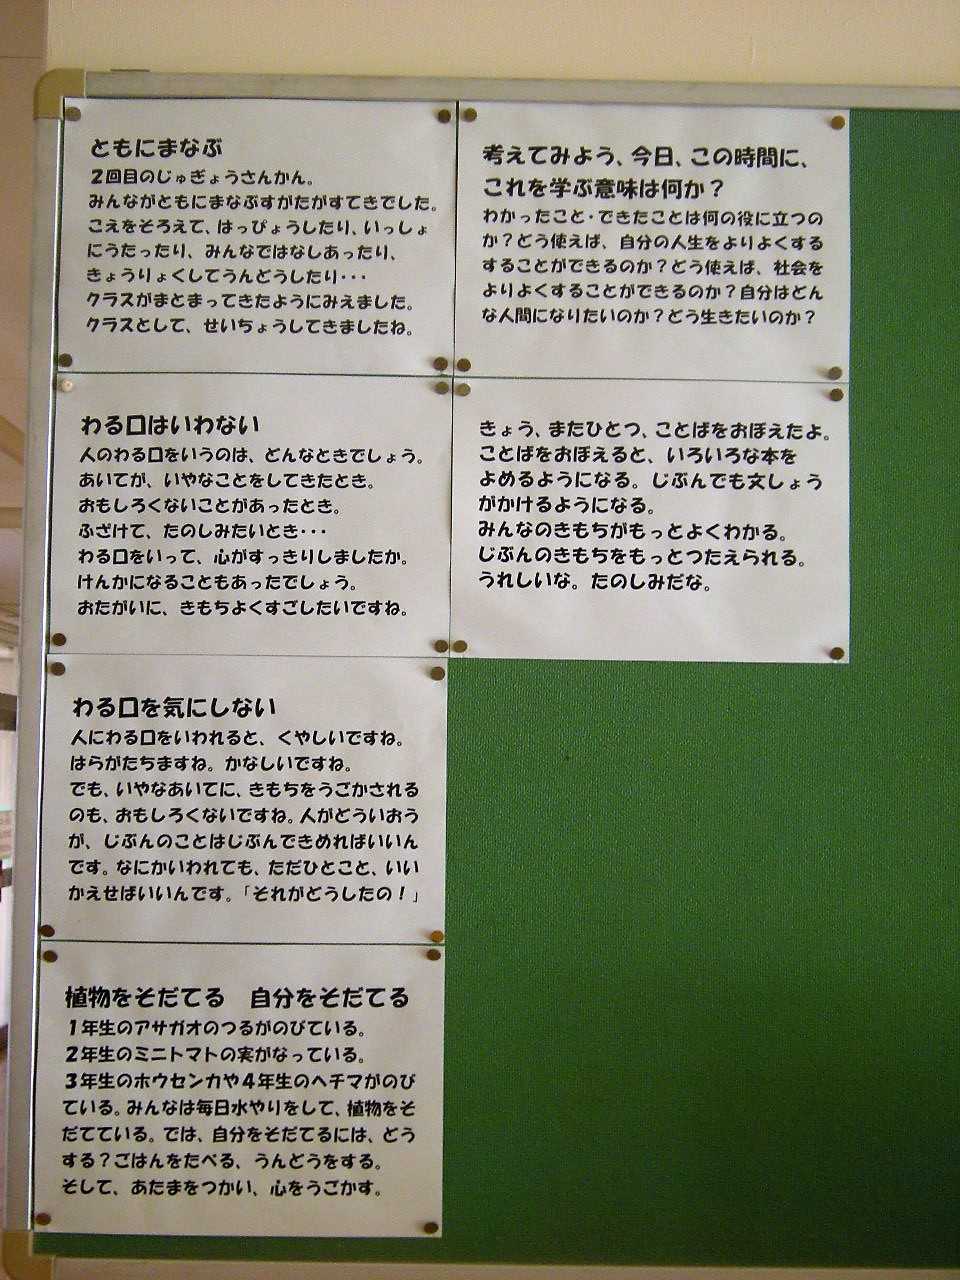 ともにまなぶ
2回目のじゅぎょうさんかん。
みんながともにまなぶすがたがすてきでした。
こえをそろえて、はっぴょうしたり、いっしょ
にうたったり、みんなではなしあったり、
きょうりょくしてうんどうしたり･･･
クラスがまとまってきたようにみえました。
クラスとして、せいちょうしてきましたね。
わる口はいわない
人のわる口をいうのは、どんなときでしょう。
あいてが、いやなことをしてきたとき。
おもしろくないことがあったとき。
ふざけて、たのしみたいとき･･･
わる口をいって、心がすっきりしましたか。
けんかになることもあったでしょう。
おたがいに、きもちよくすごしたいですね。
わる口を気にしない
人にわる口をいわれると、くやしいですね。
はらがたちますね。かなしいですね。
でも、いやなあいてに、きもちをうごかされる
のも、おもしろくないですね。人がどういおう
が、じぶんのことはじぶんできめればいいん
です。なにかいわれても、ただひとこと、いい
かえせばいいんです。「それがどうしたの！」
植物をそだてる　自分をそだてる
1年生のアサガオのつるがのびている。
2年生のミニトマトの実がなっている。
3年生のホウセンカや4年生のヘチマがのび
ている。みんなは毎日水やりをして、植物をそ
だてている。では、自分をそだてるには、どう
する？ごはんをたべる、うんどうをする。
そして、あたまをつかい、心をうごかす。
考えてみよう、今日、この時間に、
これを学ぶ意味は何か？
わかったこと･できたことは何の役に立つの
か？どう使えば、自分の人生をよりよくする
することができるのか？どう使えば、社会を
よりよくすることができるのか？自分はどん
な人間になりたいのか？どう生きたいのか？
きょう、またひとつ、ことばをおぼえたよ。
ことばをおぼえると、いろいろな本を
よめるようになる。じぶんでも文しょう
がかけるようになる。
みんなのきもちがもっとよくわかる。
じぶんのきもちをもっとつたえられる。
うれしいな。たのしみだな。